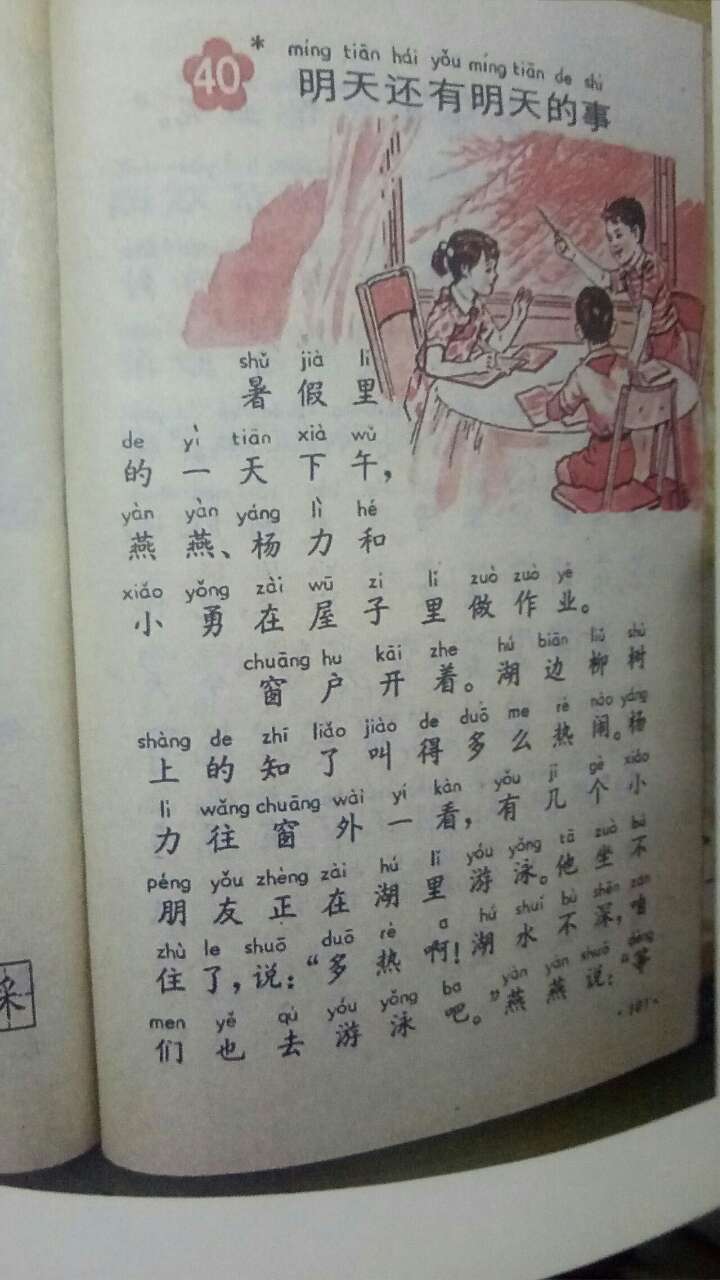 40
*
míng tiān hái yǒu míng tiān de shì
明天还有明天的事
shǔ jià lǐ
暑假里
de yì tiān xià wǔ
的一天下午，
yàn yàn yáng lì hé
燕燕、杨力和
xiǎo yǒng zài wū zi lǐ zuò zuò yè
小勇在屋子里做作业。
chuāng hu kāi zhe hú biān liǔ shù
窗户开着。湖边柳树
shàng de zhī liǎo jiào de duō me rè nào yáng
上的知了叫得多么热闹。杨
lì wǎng chuāng wài yí kàn yǒu jǐ gè xiǎo
力往窗外一看，有几个小
péng yǒu zhèng zài hú lǐ yóu yǒng tā zuò bú
朋友正在湖里游泳。他坐不
zhù le shuō duō rè a hú shuǐ bù shēn zán
住了，说：“多热啊！湖水不深，咱
men yě qù yóu yǒng ba yàn yàn shuō děng
们也去游泳吧。”燕燕说：“等
采